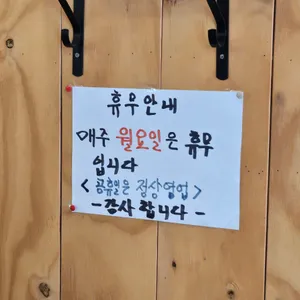 휴무안내
매주 월요일은 휴무
입니다
< 공휴일은 정상영업 >
- 감사합니다 -